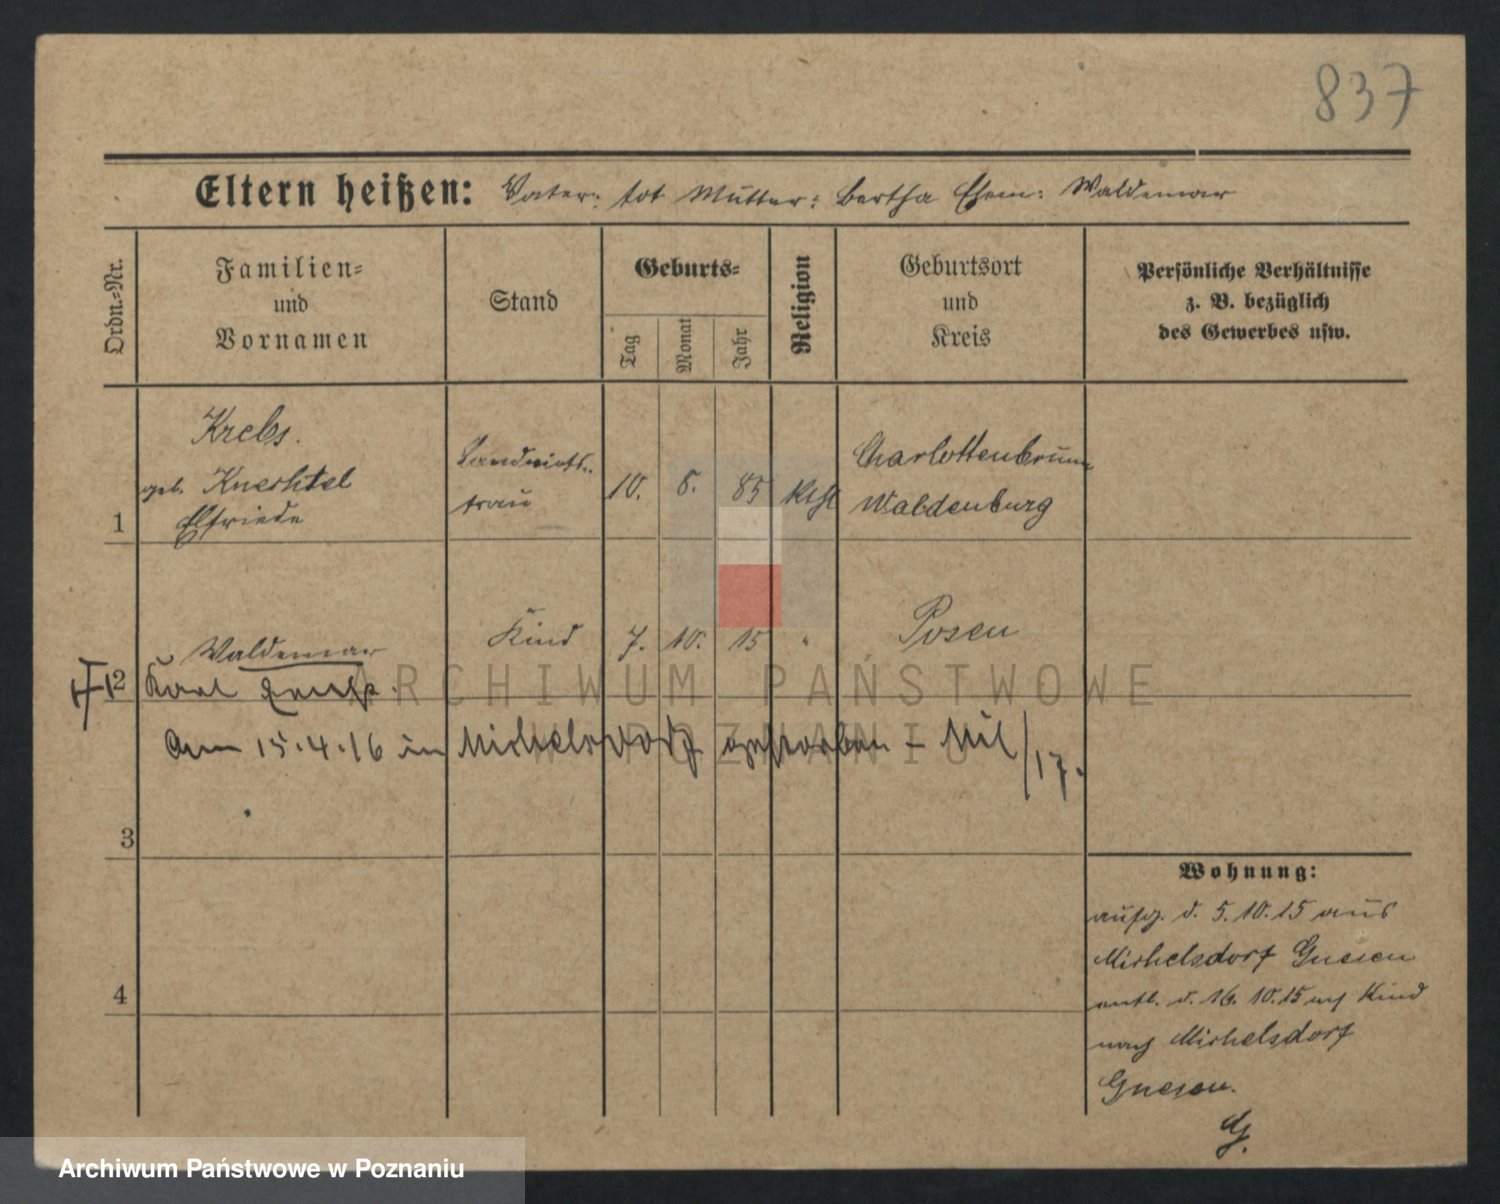 837
Eltern heißen: Vater: tot Mutter: Bertha Ehem: Waldemar
Ordn.-Nr.
Familien-
und
Vornamen
Stand
Geburts-
Tag
Monat
Jahr
Religion
Geburtsort
und
Kreis
Persönliche Verhältnisse
z. B. bezüglich
des Gewerbes usw.
1
Krebs.
geb. Knechtel
Elfriede
Landwirts-
frau
10. 8. 85
Kthl
Charlottenbrunn
Waldenburg
2
Waldemar
Karl
Kind
7. 10. 15
"
Posen
Am 15.4.16 in Michelsdorf gestorben – Mil/17.
3
4
Wohnung:
aufg. d. 5.10.15 aus
Michelsdorf Gnesen
entl. d. 16.10.15 m Kind
nach Michelsdorf
Gnesen.
G.
ARCHIWUM PAŃSTWOWE
W POZNANIU
Archiwum Państwowe w Poznaniu